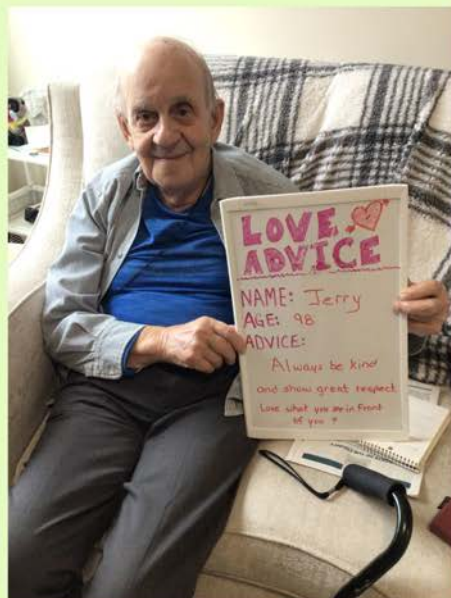 LOVE
ADVICE
NAME: Jerry
AGE: 98
ADVICE:
Always be kind
and show great respect
Love what you see in Front
of you ?